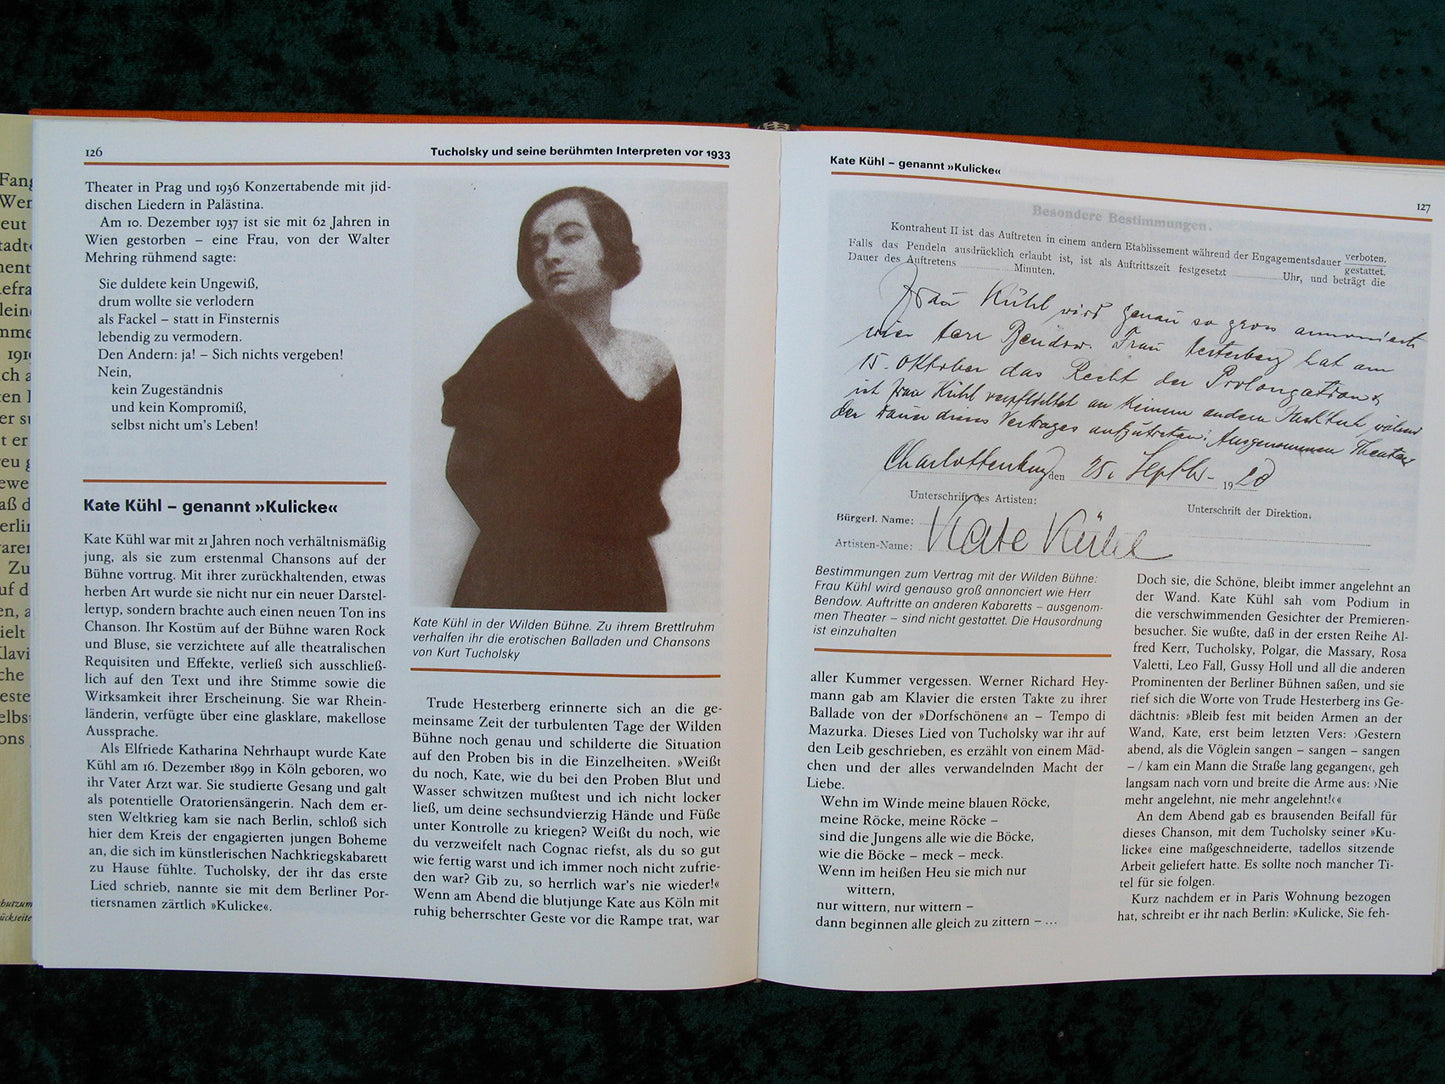 126
Tucholsky und seine berühmten Interpreten vor 1933
Theater in Prag und 1936 Konzertabende mit jid-
dischen Liedern in Palästina.
Am 10. Dezember 1937 ist sie mit 62 Jahren in
Wien gestorben – eine Frau, von der Walter
Mehring rühmend sagte:
Sie duldete kein Ungewiß,
drum wollte sie verlodern
als Fackel – statt in Finsternis
lebendig zu vermodern.
Den Andern: ja! – Sich nichts vergeben!
Nein,
kein Zugeständnis
und kein Kompromiß,
selbst nicht um's Leben!
Kate Kühl – genannt »Kulicke«
Kate Kühl war mit 21 Jahren noch verhältnismäßig
jung, als sie zum erstenmal Chansons auf der
Bühne vortrug. Mit ihrer zurückhaltenden, etwas
herben Art wurde sie nicht nur ein neuer Darstel-
lertyp, sondern brachte auch einen neuen Ton ins
Chanson. Ihr Kostüm auf der Bühne waren Rock
und Bluse, sie verzichtete auf alle theatralischen
Requisiten und Effekte, verließ sich ausschließ-
lich auf den Text und ihre Stimme sowie die
Wirksamkeit ihrer Erscheinung. Sie war Rhein-
länderin, verfügte über eine glasklare, makellose
Aussprache.
Als Elfriede Katharina Nehrhaupt wurde Kate
Kühl am 16. Dezember 1899 in Köln geboren, wo
ihr Vater Arzt war. Sie studierte Gesang und galt
als potentielle Oratoriensängerin. Nach dem er-
sten Weltkrieg kam sie nach Berlin, schloß sich
hier dem Kreis der engagierten jungen Boheme
an, die sich im künstlerischen Nachkriegskabarett
zu Hause fühlte. Tucholsky, der ihr das erste
Lied schrieb, nannte sie mit dem Berliner Por-
tiersnamen zärtlich »Kulicke«.
Kate Kühl in der Wilden Bühne. Zu ihrem Brettlruhm
verhalfen ihr die erotischen Balladen und Chansons
von Kurt Tucholsky
Trude Hesterberg erinnerte sich an die ge-
meinsame Zeit der turbulenten Tage der Wilden
Bühne noch genau und schilderte die Situation
auf den Proben bis in die Einzelheiten. »Weißt
du noch, Kate, wie du bei den Proben Blut und
Wasser schwitzen mußtest und ich nicht locker
ließ, um deine sechsundvierzig Hände und Füße
unter Kontrolle zu kriegen? Weißt du noch, wie
du verzweifelt nach Cognac riefst, als du so gut
wie fertig warst und ich immer noch nicht zufrie-
den war? Gib zu, so herrlich war's nie wieder!«
Wenn am Abend die blutjunge Kate aus Köln mit
ruhig beherrschter Geste vor die Rampe trat, war
Kate Kühl – genannt »Kulicke«
127
Besondere Bestimmungen.
Kontrahent II ist das Auftreten in einem andern Etablissement während der Engagementsdauer verboten.
gestattet.
Falls das Pendeln ausdrücklich erlaubt ist, ist als Auftrittszeit festgesetzt Uhr, und beträgt die
Dauer des Auftretens Minuten.
Frau Kühl wird genau so gross annonciert
wie Herr Bendow. Frau Hesterberg hat am
15. Oktober das Recht der Prolongation &
ist Frau Kühl verpflichtet an keinem andern während
der Dauer dieses Vertrages aufzutreten. Ausgenommen Theater
Charlottenburg den 25. Septbr 1920
Unterschrift des Artisten:
Unterschrift der Direktion.
Bürgerl. Name:
Artisten-Name:
Kate Kühl
Bestimmungen zum Vertrag mit der Wilden Bühne:
Frau Kühl wird genauso groß annonciert wie Herr
Bendow. Auftritte an anderen Kabaretts – ausgenom-
men Theater – sind nicht gestattet. Die Hausordnung
ist einzuhalten
aller Kummer vergessen. Werner Richard Hey-
mann gab am Klavier die ersten Takte zu ihrer
Ballade von der »Dorfschönen« an – Tempo di
Mazurka. Dieses Lied von Tucholsky war ihr auf
den Leib geschrieben, es erzählt von einem Mäd-
chen und der alles verwandelnden Macht der
Liebe.
Wehn im Winde meine blauen Röcke,
meine Röcke, meine Röcke –
sind die Jungens alle wie die Böcke,
wie die Böcke – meck – meck.
Wenn im heißen Heu sie mich nur
wittern,
nur wittern, nur wittern –
dann beginnen alle gleich zu zittern – ...
Doch sie, die Schöne, bleibt immer angelehnt an
der Wand. Kate Kühl sah vom Podium in
die verschwimmenden Gesichter der Premieren-
besucher. Sie wußte, daß in der ersten Reihe Al-
fred Kerr, Tucholsky, Polgar, die Massary, Rosa
Valetti, Leo Fall, Gussy Holl und all die anderen
Prominenten der Berliner Bühnen saßen, und sie
rief sich die Worte von Trude Hesterberg ins Ge-
dächtnis: »Bleib fest mit beiden Armen an der
Wand, Kate, erst beim letzten Vers: ›Gestern
abend, als die Vöglein sangen – sangen – sangen
– / kam ein Mann die Straße lang gegangen‹, geh
langsam nach vorn und breite die Arme aus: ›Nie
mehr angelehnt, nie mehr angelehnt!‹«
An dem Abend gab es brausenden Beifall für
dieses Chanson, mit dem Tucholsky seiner »Ku-
licke« eine maßgeschneiderte, tadellos sitzende
Arbeit geliefert hatte. Es sollte noch mancher Ti-
tel für sie folgen.
Kurz nachdem er in Paris Wohnung bezogen
hat, schreibt er ihr nach Berlin: »Kulicke, Sie feh-